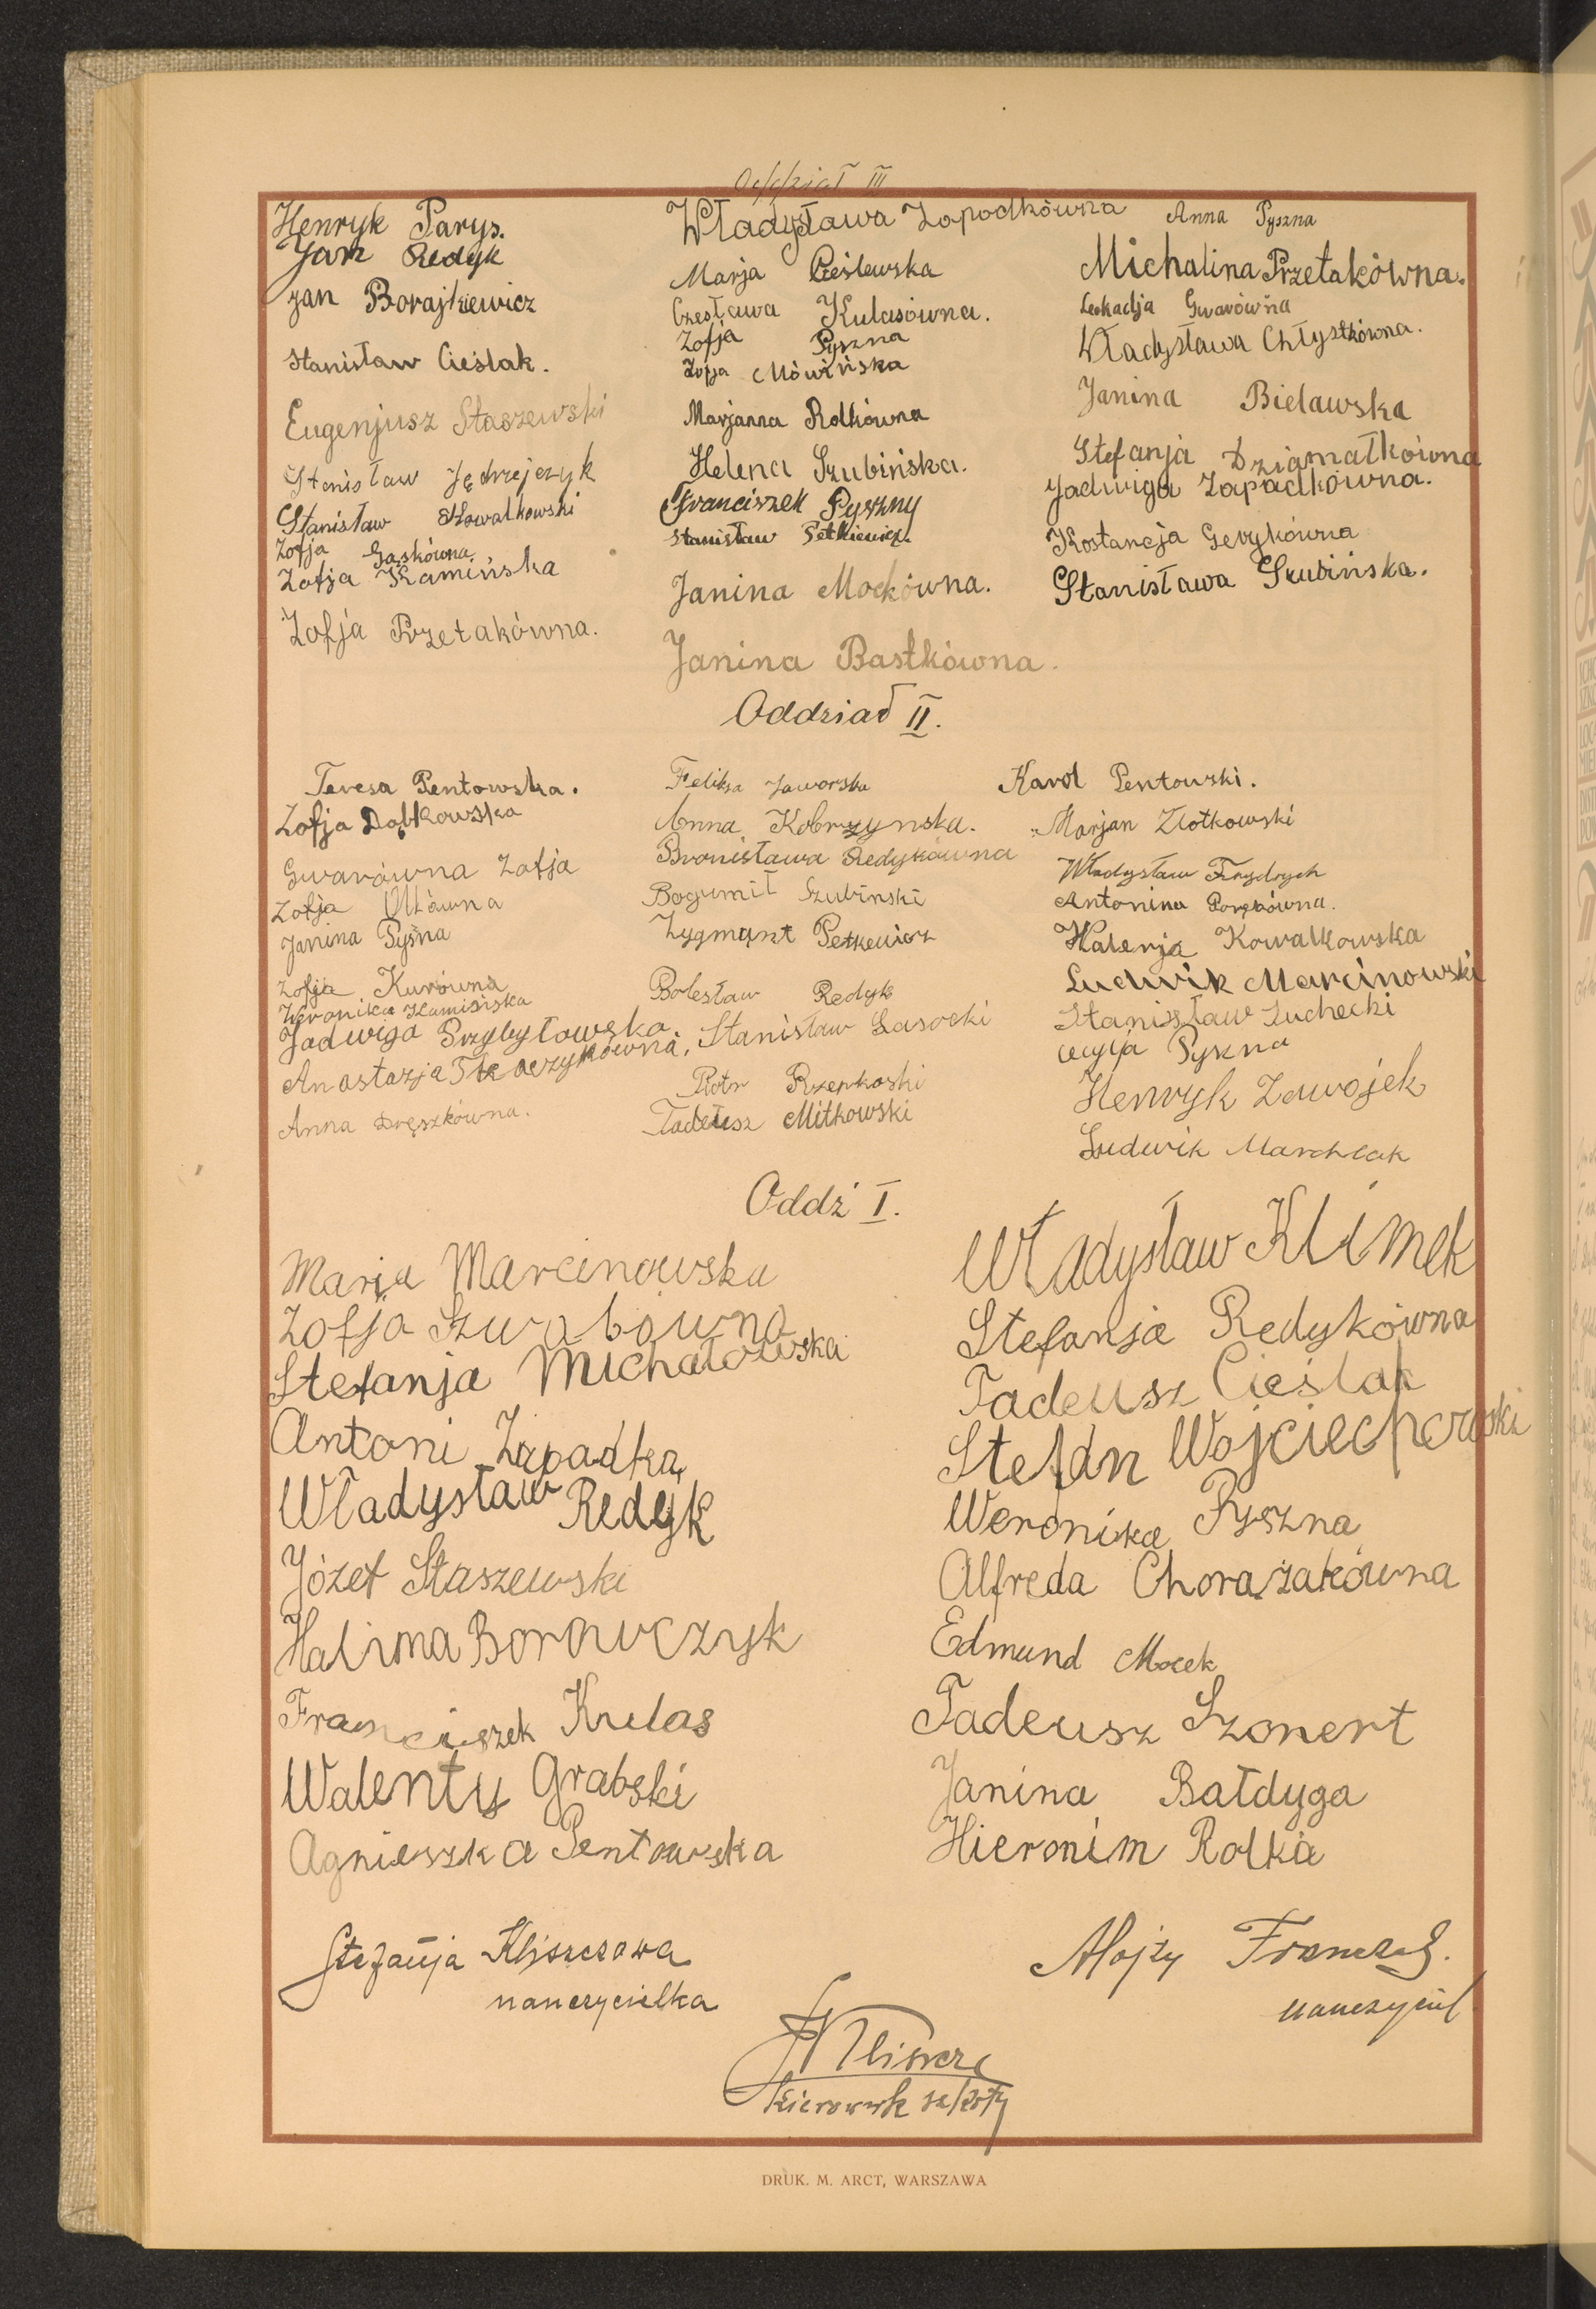 Oddział III
Henryk Parys.
Jan Redyk
Jan Borajkiewicz
Stanisław Cieślak.
Eugenjusz Staszewski
Stanisław Jędrzejczyk
Stanisław Kowalkowski
Zofja Gąskówna
Zofja Kamińska
Zofja Przetakówna.
Władysława Zapadkówna
Marja Cieślewska
Czesława Kulasówna.
Zofja Pyszna
Zofja Mówińska
Marjanna Rolkówna
Helena Szubińska.
Franciszek Pyszny
Stanisław Petkiewicz.
Janina Mockówna.
Janina Bastkówna.
Anna Pyszna
Michalina Przetakówna.
Leokadja Gwarówna
Władysława Chłystkówna.
Janina Bielawska
Stefanja Dziamałkówna
Jadwiga Zapadkówna.
Kostancja Gerykówna
Stanisława Szubińska.
Oddział II.
Teresa Pentowska.
Zofja Dąbkowska
Gwarówna Zofja
Zofja
Janina Pyšna
Zofja Kurówna
Weronika Kamińska
Jadwiga Przybyłowska.
Anastazja Tkaczykówna,
Anna Dręszkówna.
Feliksa Jaworska
Anna Kobrzynska.
Bronisława Redykówna
Bogumił Szubinski
Zygmunt Petkewicz
Bolesław Redyk
Stanisław Lasocki
Piotr Rzepkoski
Tadeusz Mitkowski
Karol Pentowski.
Marjan Złotkowski
Władysław Frydrych
Antonina Porębówna.
Walerja Kowalkowska
Ludwik Marcinowski
Stanisław Żuchecki
Pyszna
Henryk Zawojek
Ludwik Marchlak
Oddz I.
Marja Marcinowska
Zofja Szwabówna
Stefanja Michałowska
Antoni Zapadka
Władysław Redyk
Józef Staszewski
Halina Borowczyk
Franciszek Kulas
Walenty Grabski
Agnieszka Pentowska
Władysław Klimek
Stefanja Redykówna
Tadeusz Cieślak
Stefan Wojciechowski
Weronika Pyszna
Alfreda Chorążakówna
Edmund Mocek
Tadeusz Szonert
Janina Bałdyga
Hieronim Rolka
Stefanja Kliszczowa
nauczycielka
Alojzy Franczak.
nauczyciel
Kliszcz
kierownik szkoły
DRUK. M. ARCT, WARSZAWA